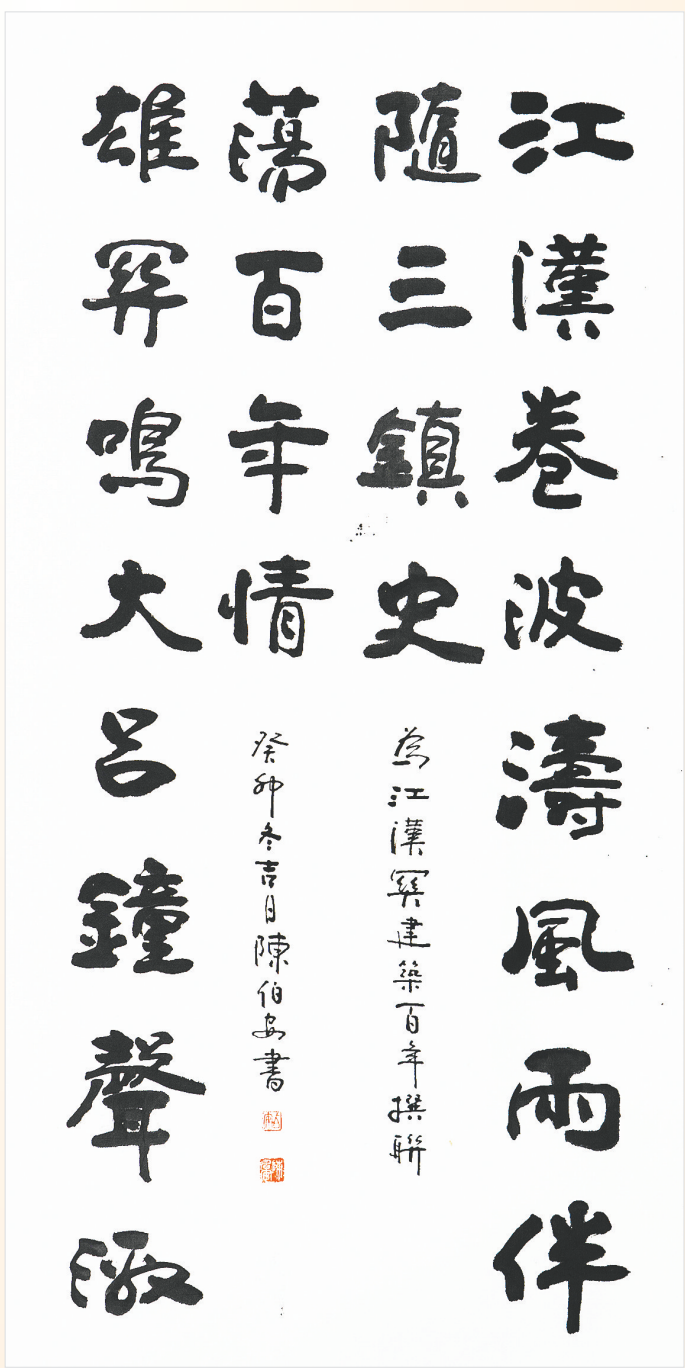 江漢卷波濤風雨伴
隨三鎮史
為江漢關建築百年撰聯
雄關鳴大呂鐘聲激
蕩百年情
癸卯冬吉日陳伯安書